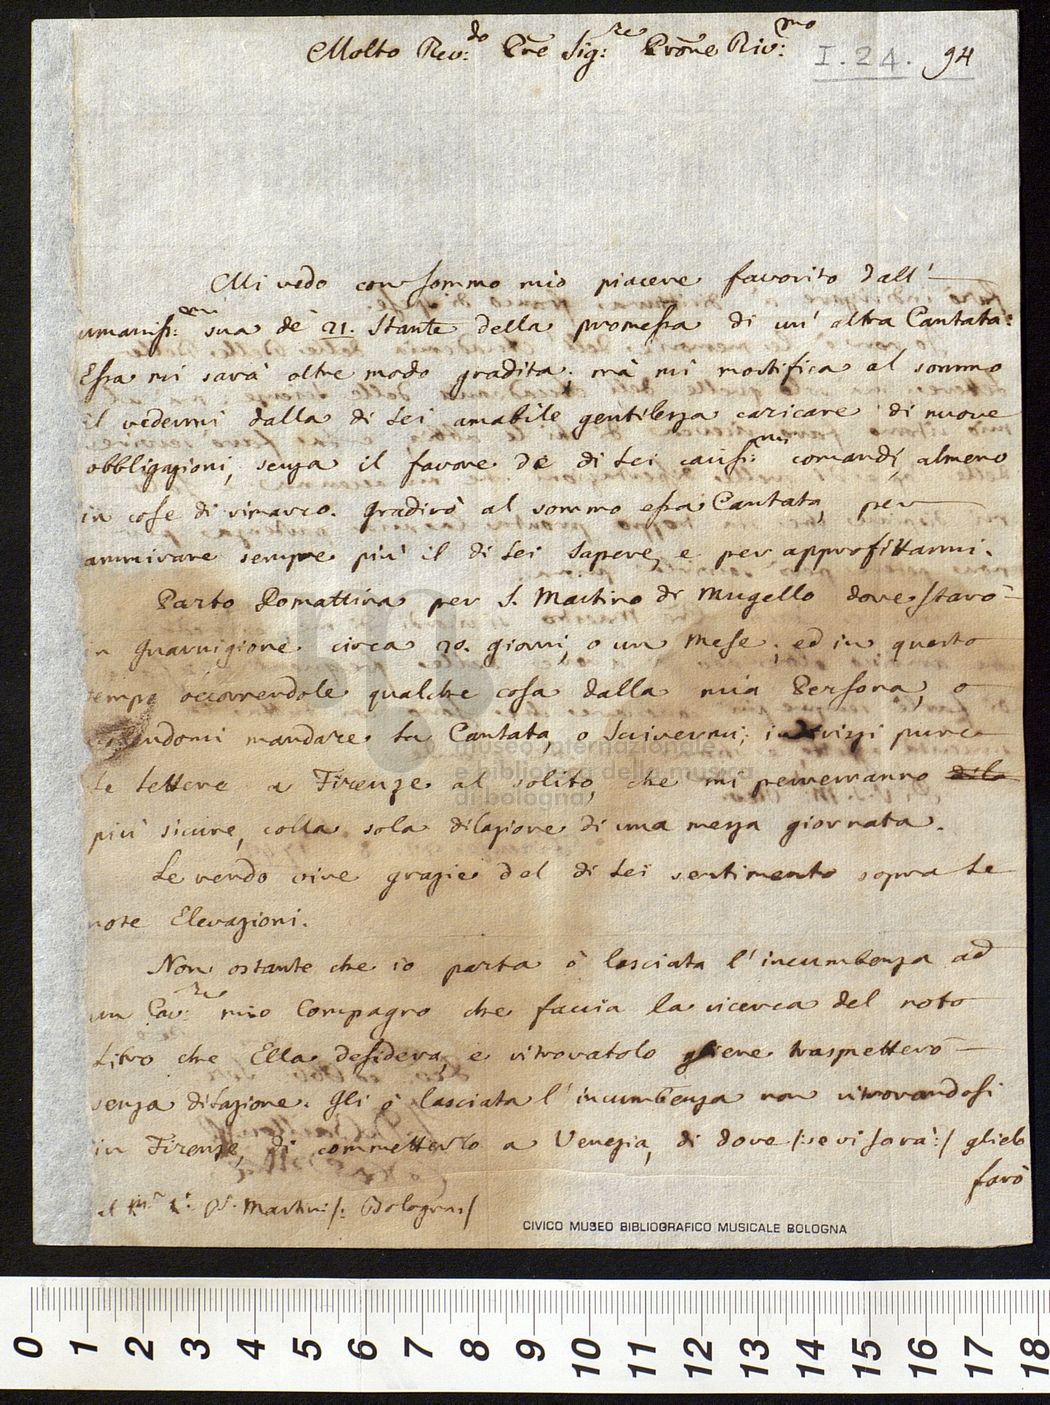 Molto Rev:do Pre Sig:re Prone Riv:mo
I.24. 94
Mi vedo con sommo mio piacere favorito dall'
umaniss:ma sua de 21. stante della promessa di un' altra Cantata:
Essa mi sarà oltre modo gradita; mà mi mortifica al sommo
il vedermi dalla di Lei amabile gentilezza caricare di nuove
obbligazioni, senza il favore de di Lei cariss:mi comandi, almeno
in cose di rimarco. Gradirò al sommo essa Cantata, per
ammirare sempre più il di Lei sapere, e per approfittarmi.
Parto Domattina per S. Martino di Mugello dove starò
in Guarnigione circa 20. giorni, o un Mese; ed in questo
tempo occorrendole qualche cosa dalla mia Persona, o
mandare La Cantata, o scrivermi; indrizzi pure
le Lettere a Firenze al solito, che mi perverranno dila
più sicure, colla sola dilazione di una mezza giornata.
Le rendo vive grazie del di Lei sentimento sopra Le
note Elevazioni.
Non ostante che io parta ò lasciata l'incumbenza ad
un Cav:re mio Compagno che faccia la ricerca del noto
Libro che Ella desidera, e ritrovatolo gliene trasmetterò
senza dilazione. Gli ò lasciata l'incumbenza non ritrovandosi
in Firenze, di commetterlo a Venezia, di dove /:se vi sarà:/ glielo
farò
al P. Martini /: Bologna/
CIVICO MUSEO BIBLIOGRAFICO MUSICALE BOLOGNA
museo internazionale
e biblioteca della musica
di bologna
0 1 2 3 4 5 6 7 8 9 10 11 12 13 14 15 16 17 18